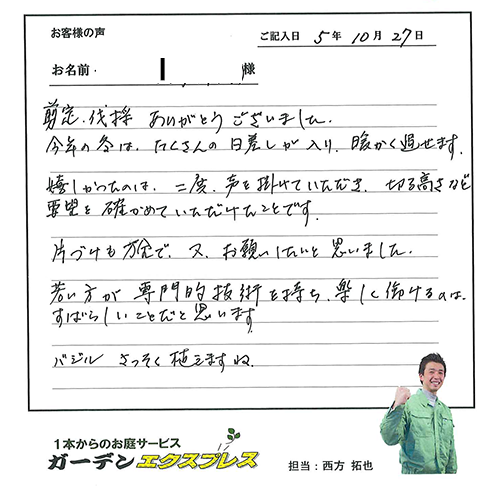 お客様の声
ご記入日 5年 10月 27日
お名前 様
剪定、伐採 ありがとうございました。
今年の冬は、たくさんの日差しが入り、暖かく過せます。
嬉しかったのは、二度、声を掛けていただき、切る高さなど
要望を確かめていただけたことです。
片づけも万全で、又、お願いしたいと思いました。
若い方が専門的技術を持ち、楽しく働けるのは、
すばらしいことだと思います
バジル さっそく植えますね。
1本からのお庭サービス
ガーデンエクスプレス
担当：西方 拓也